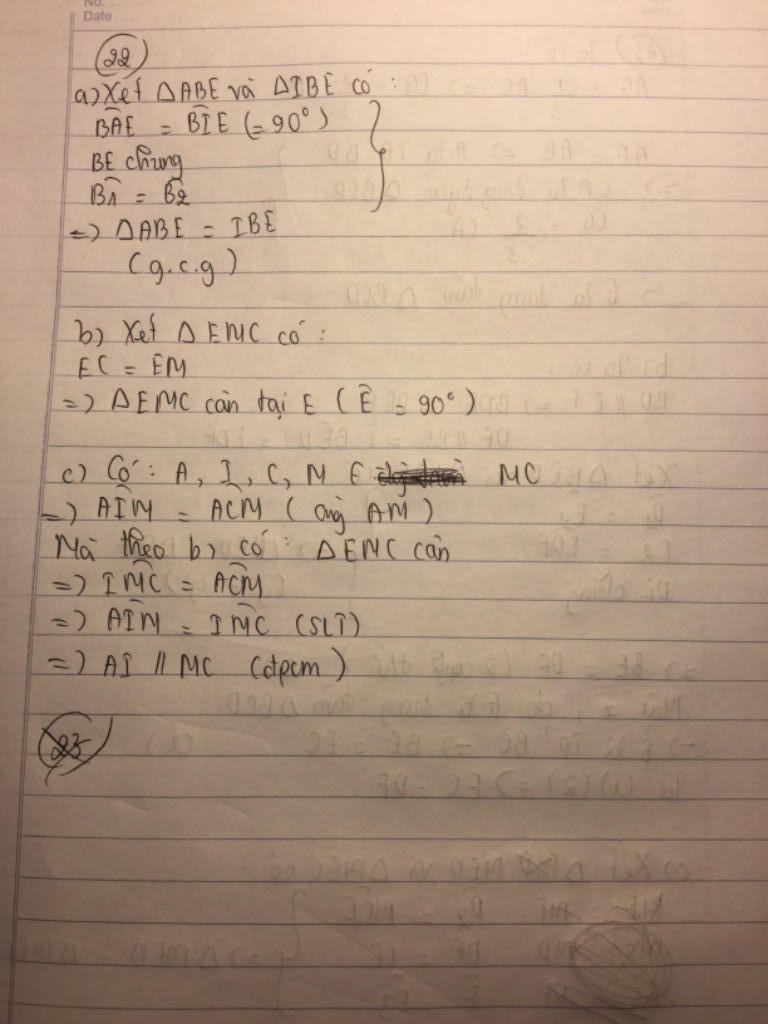 No.
Date
22
a) Xét ΔABE và ΔIBE có:
BÂE = BÎE (= 90°)
BE chung
B̂1 = B̂2
=> ΔABE = IBE
(g.c.g)
b) Xét ΔEMC có:
EC = EM
=> ΔEMC cân tại E (Ê = 90°)
c) Có: A, I, C, M ∈ MC
=> AÎM = AĈM ( AM)
Mà theo b) có: ΔEMC cân
=> IM̂C = AĈM
=> AÎM = IM̂C (SLT)
=> AI // MC (đpcm)
23